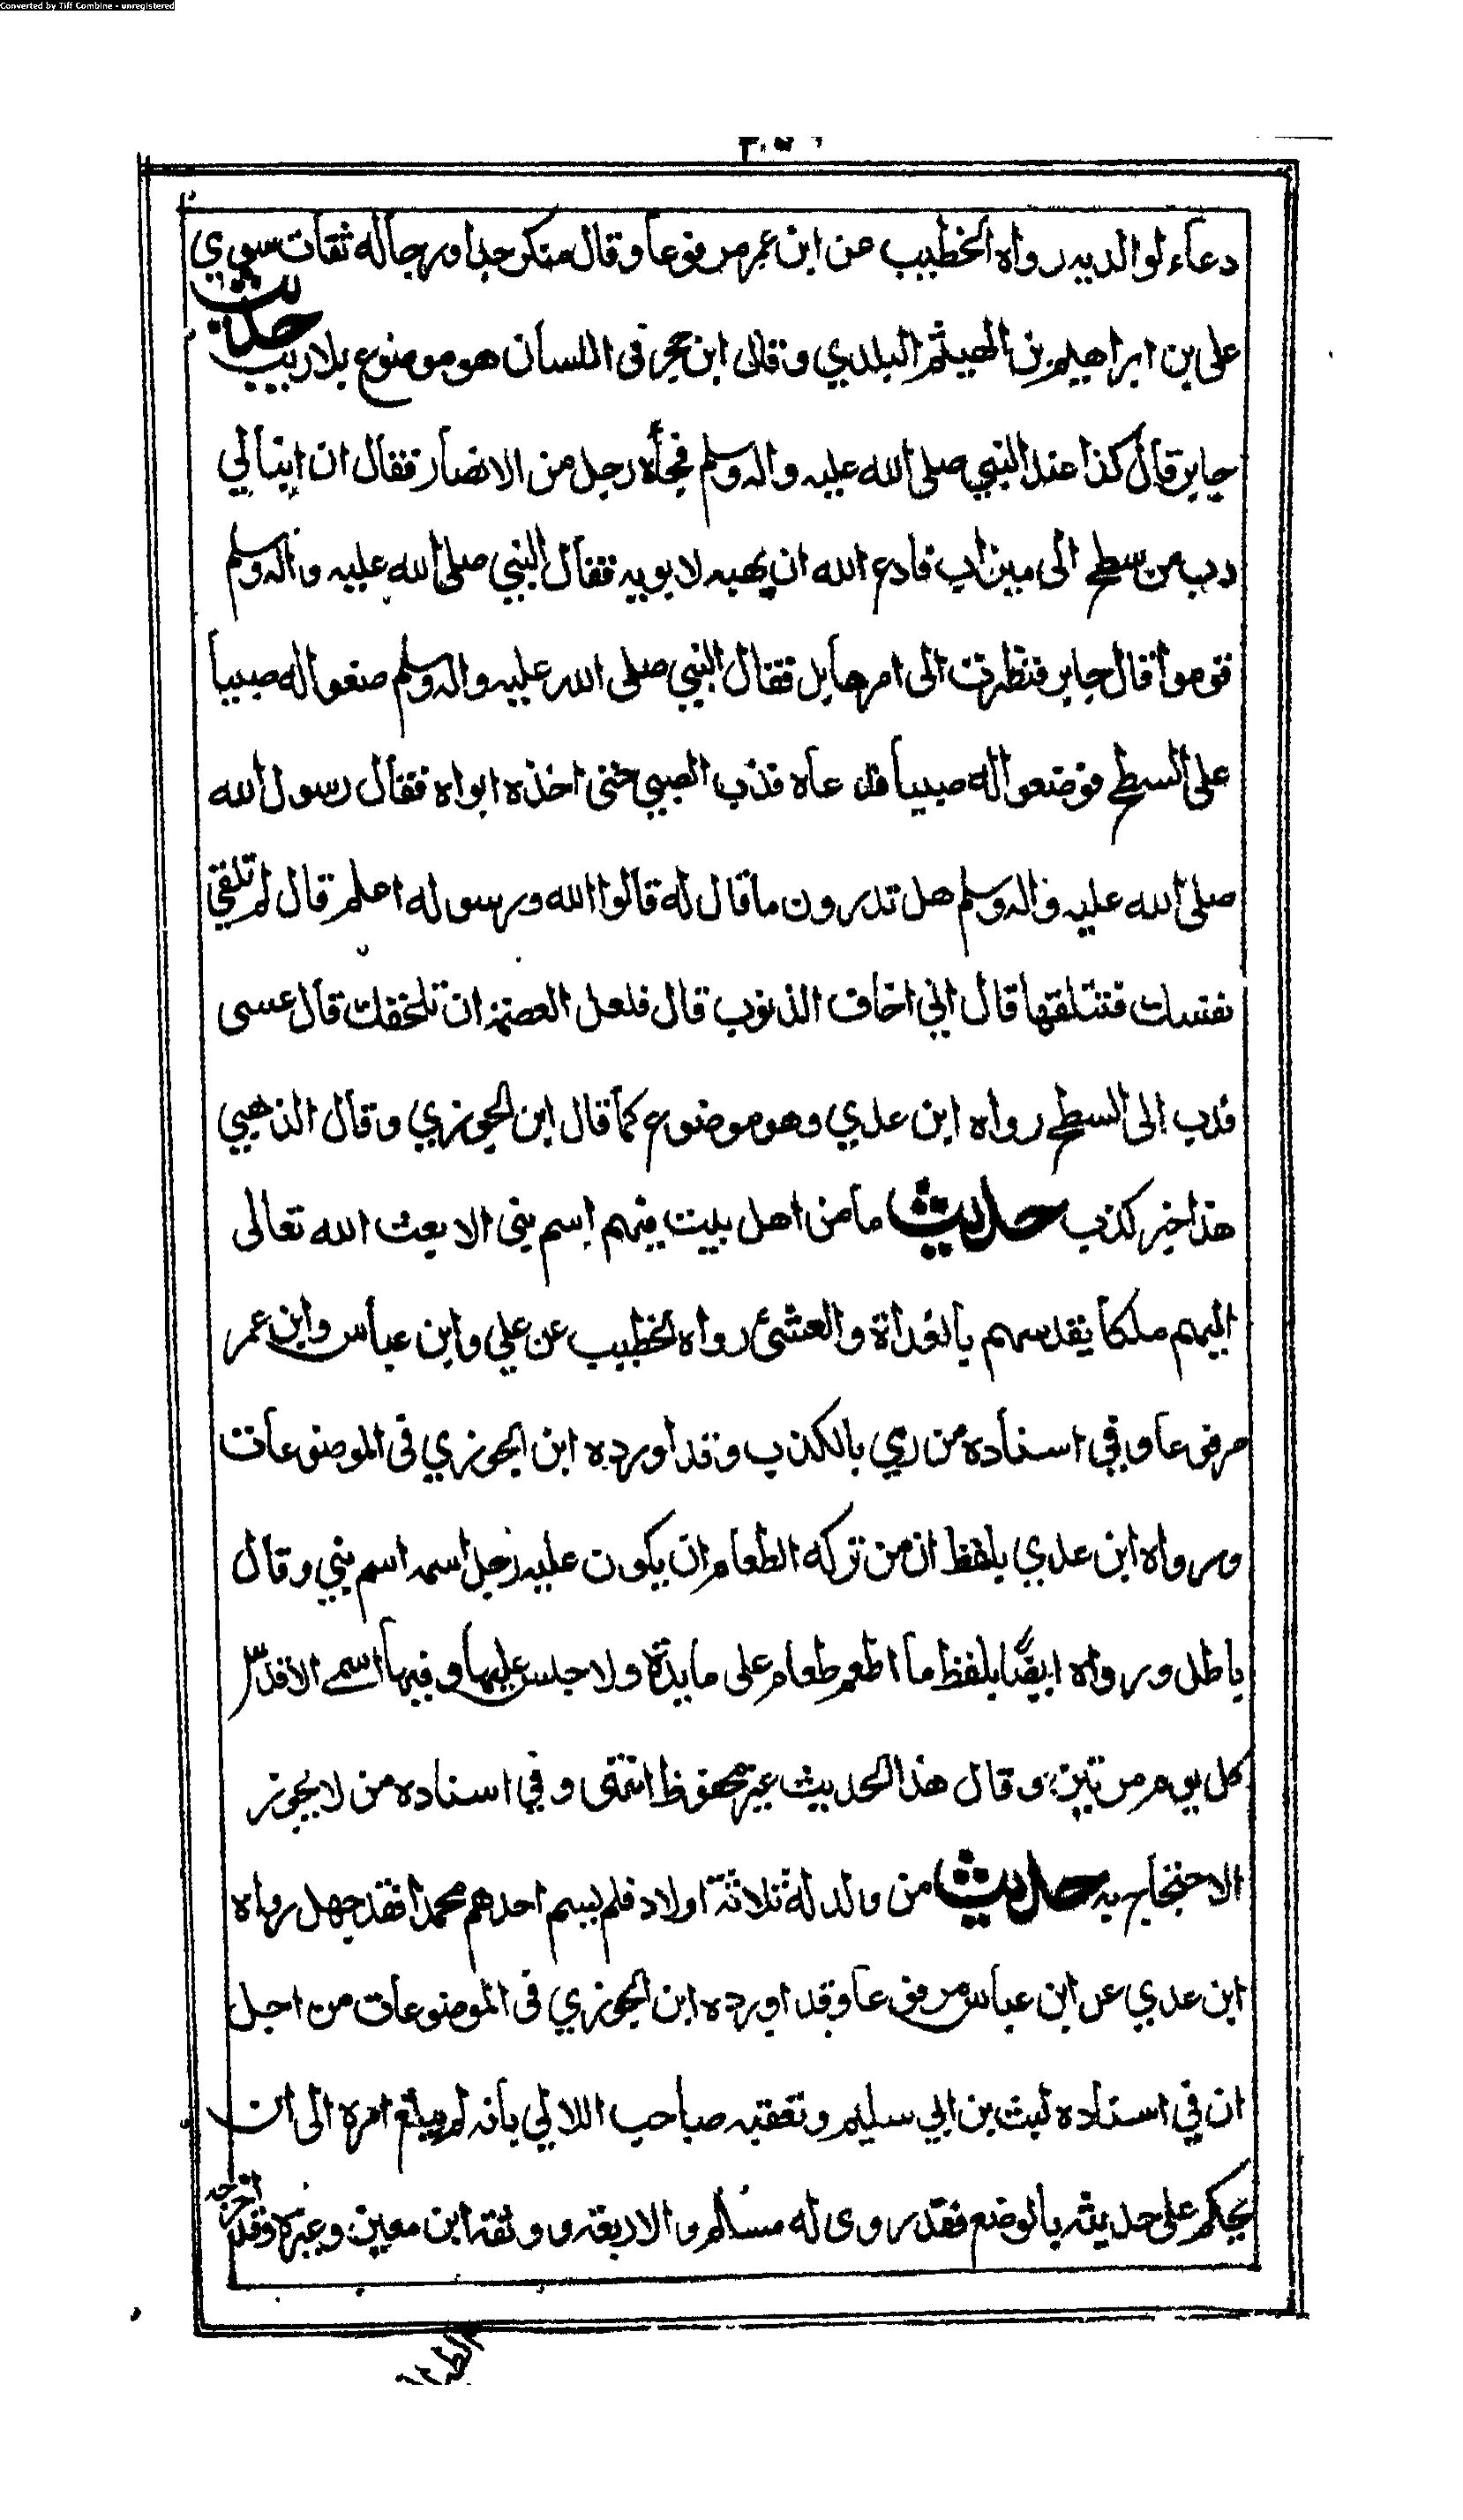 Converted by Tiff Combine - unregistered
دعاء لوالديه رواه الخطيب عن ابن عمر مرفوعا وقال منكر جدا ورجاله ثقات سوى
على بن ابراهيم بن الهيثم البلدي وقال ابن حجر فى اللسان هو موضوع بلا ريب حديث
جابر قال كنا عند النبي صلى الله عليه واله وسلم فجأه رجل من الانصار فقال ان ابنا لي
دب من سطح الى ميزاب فادع الله ان يهبه لابويه فقال النبي صلى الله عليه واله وسلم
قوموا قال جابر فنظرت الى امر هايل فقال النبي صلى الله عليه واله وسلم ضعوا له صبيا
على السطح فوضعوا له صبيا فدعاه فدب الصبي حتى اخذه ابواه فقال رسول الله
صلى الله عليه واله وسلم هل تدرون ما قال له قالوا الله ورسوله اعلم قال لم تلقي
نفسك فتتلفها قال اني اخاف الذنوب قال فلعل العصمة ان تلحقك قال عسى
فدب الى السطح رواه ابن عدي وهو موضوع كما قال ابن الجوزي وقال الذهبي
هذا خبر كذب حديث ما من اهل بيت فيهم اسم نبى الا بعث الله تعالى
اليهم ملكا يقدسهم بالغداة والعشى رواه الخطيب عن علي وابن عباس وابن عمر
مرفوعا وفي اسناده من رمي بالكذب وقد اورده ابن الجوزي فى الموضوعات
ورواه ابن عدي بلفظ ان من تركه الطعام ان يكون عليه رجل اسمه اسم نبي وقال
باطل ورواه ايضا بلفظ ما اطعم طعام على مايدة ولا جلس عليها وفيها اسمى الا قدس
كل يوم مرتين وقال هذا الحديث غير محفوظ انتهى وفي اسناده من لا يجوز
الاحتجاج به حديث من ولد له ثلاثة اولاد فلم يسم احدهم محمدا فقد جهل رواه
ابن عدي عن ابن عباس مرفوعا وقد اورده ابن الجوزي فى الموضوعات من اجل
ان في اسناده ليث بن ابي سليم وتعقبه صاحب اللالي بانه لم يبلغ امره الى ان
يحكم على حديثه بالوضع فقد روى له مسلم والاربعة ووثقه ابن معين وغيره وقد اخرجه